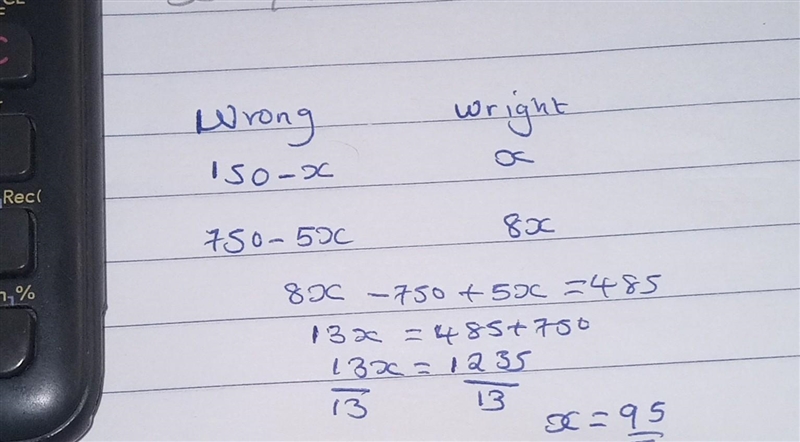 Wrong wright
150-x x
Rec(
750-5x 8x
8x -750 +5x =485
%
13x =485+750
13x = 1235
13 13
x = 95